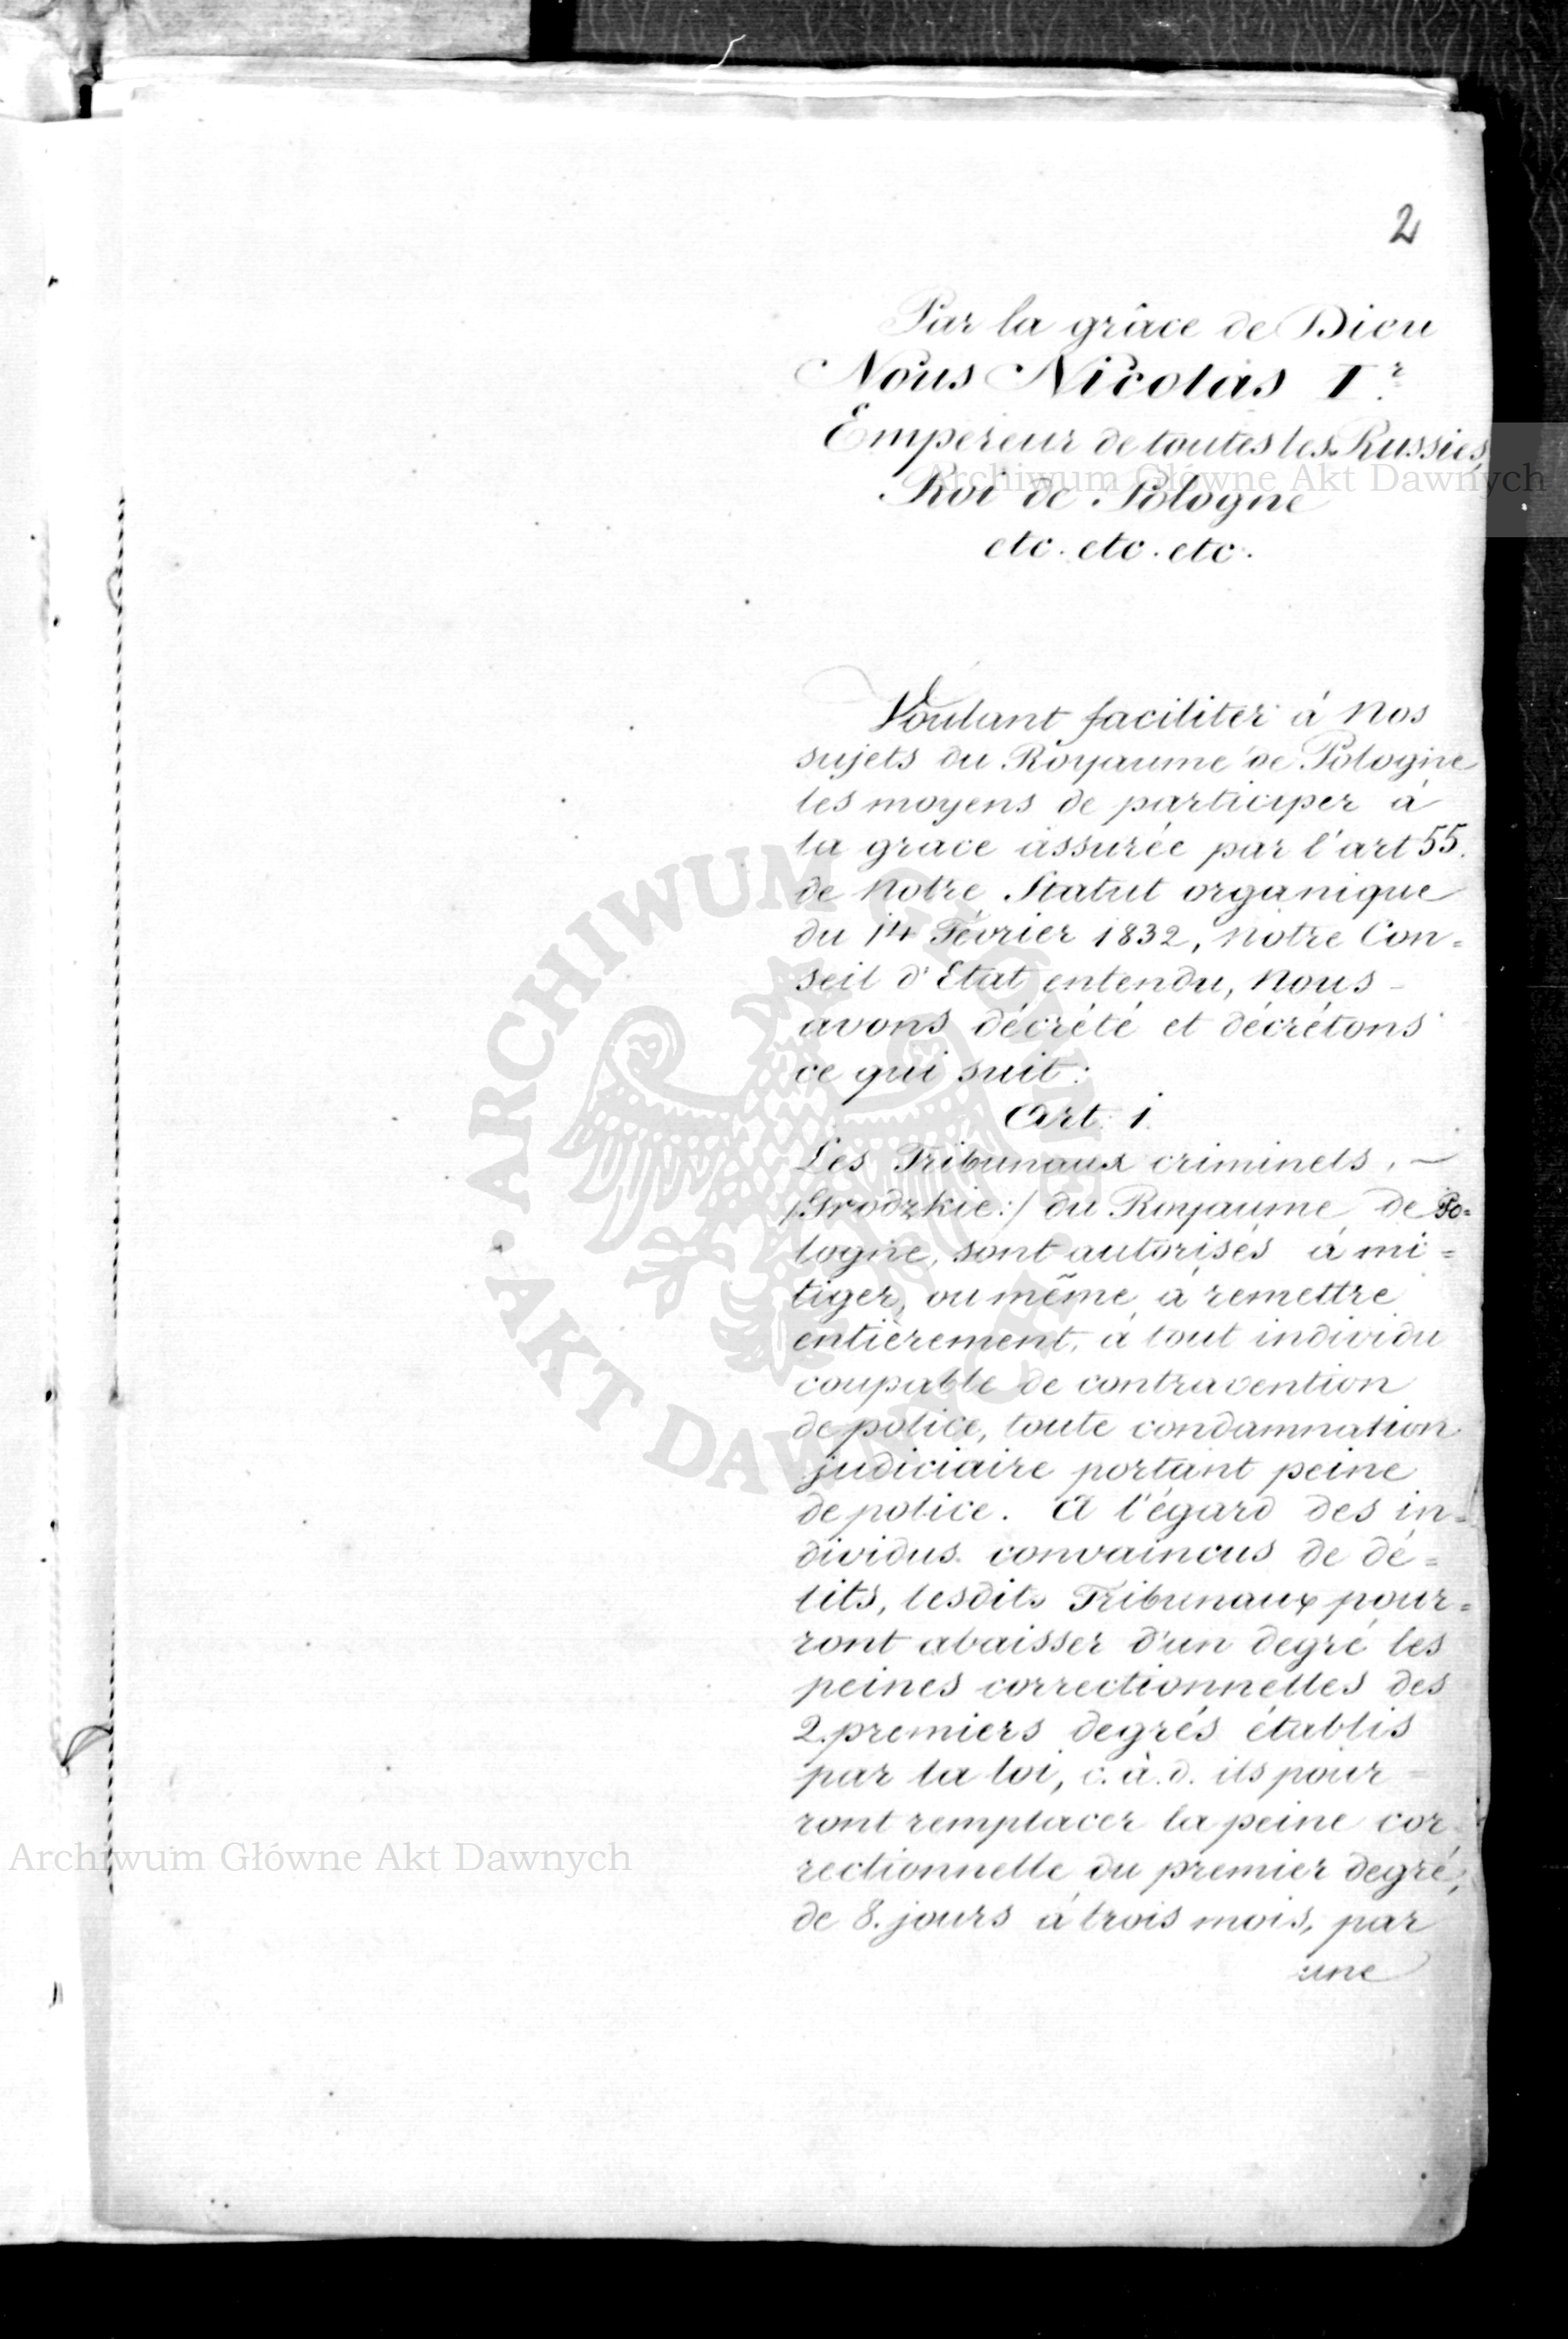 2
Par la grâce de Dieu
Nous Nicolas Ir
Empereur de toutes les Russies,
Archiwum Główne Akt Dawnych
Roi de Pologne
etc. etc. etc.
Voulant faciliter à Nos
sujets du Royaume de Pologne
les moyens de participer à
la grace assurée par l'art 55.
de Notre Statut organique
du 14 Février 1832, Notre Con=
seil d'Etat entendu, Nous
avons décrété et décrétons
ce qui suit:
Art. 1.
Les Tribunaux criminels, —
/Grodzkie:/ du Royaume de Po=
logne, sont autorisés à mi=
tiger, ou même à remettre
entièrement, à tout individu
coupable de contravention
de police, toute condamnation
judiciaire portant peine
de police. A l'égard des in=
dividus convaincus de dé=
lits, lesdits Tribunaux pour=
ront abaisser d'un degré les
peines correctionnelles des
2. premiers degrés établis
par la loi, c. à. d. ils pour=
ront remplacer la peine cor
rectionnelle du premier degré,
Archiwum Główne Akt Dawnych
de 8. jours à trois mois, par
une
ARCHIWUM GŁÓWNE
AKT DAWNYCH